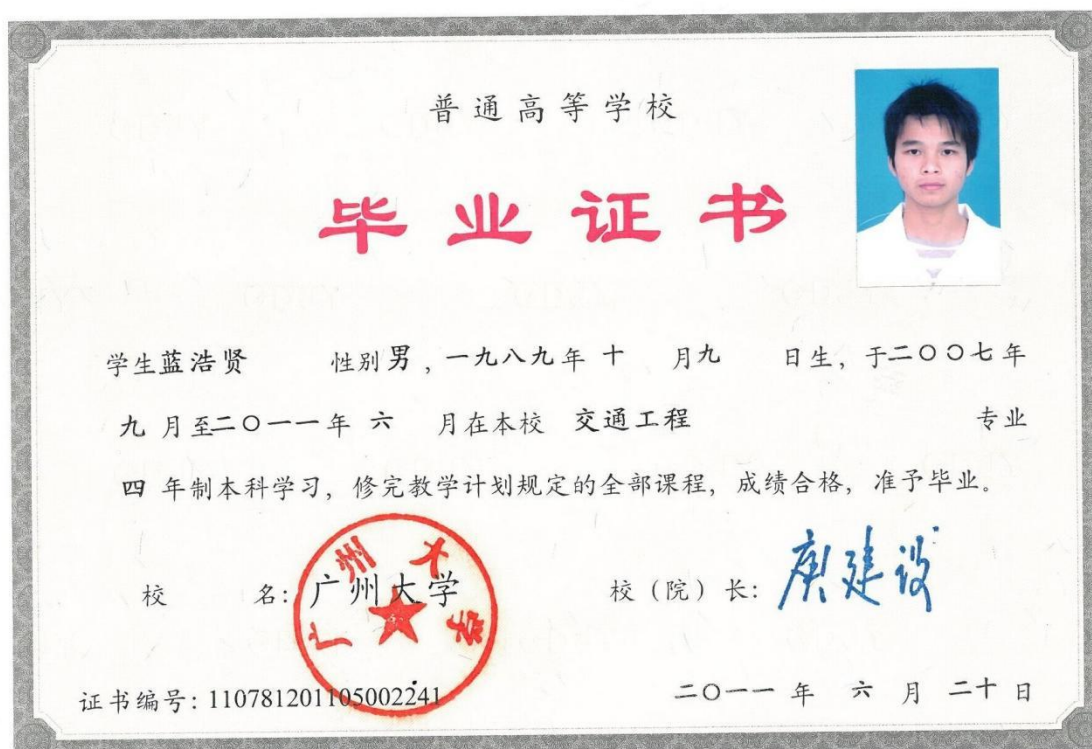 普通高等学校
毕业证书
学生蓝浩贤 性别男，一九八九年十月九日生，于二〇〇七年
九月至二〇一一年六月在本校 交通工程 专业
四年制本科学习，修完教学计划规定的全部课程，成绩合格，准予毕业。
校 名：广州大学 校（院）长：庾建设
广州大学
证书编号：110781201105002241 二〇一一年六月二十日